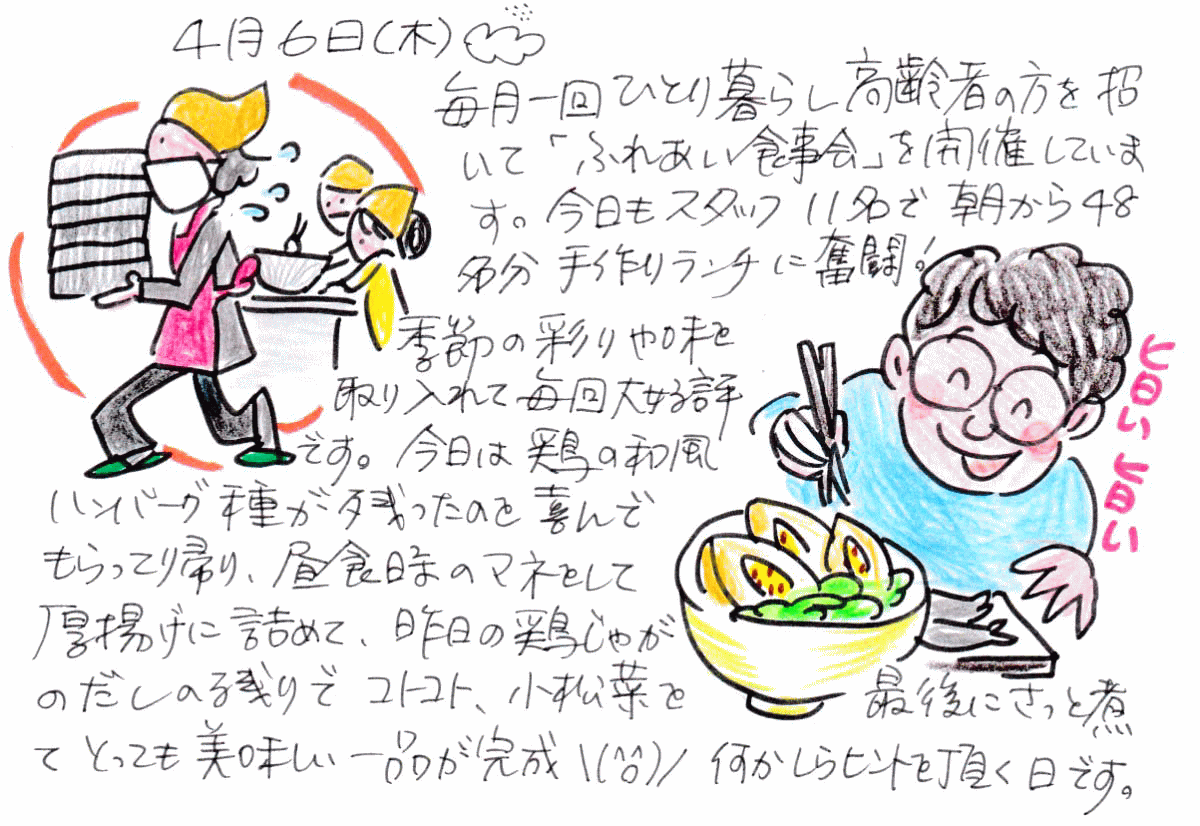 4月6日(木)
毎月一回ひとり暮らし高齢者の方を招
いて「ふれあい食事会」を開催していま
す。今日もスタッフ11名で朝から48
名分手作りランチに奮闘!
季節の彩りや味を
取り入れて毎回大好評
です。今日は鶏の和風
ハンバーグ種が残ったのを喜んで
もらって帰り、昼食時のマネをして
厚揚げに詰めて、昨日の鶏じゃが
のだしの残りでコトコト、小松菜を
最後にさっと煮
てとっても美味しい一品が完成\(^o^)/何かしらヒントを頂く日です。
旨い旨い